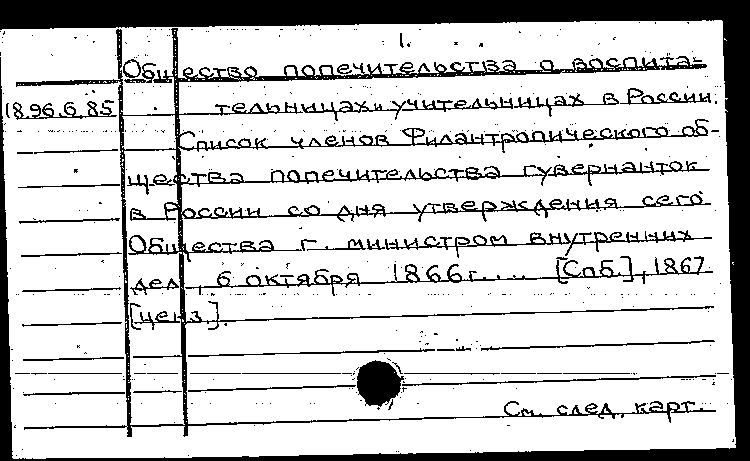 1.
Общество попечительства о воспита-
18.96.6.85 тельницах и учительницах в России.
Список членов Филантропического об-
щества попечительства гувернанток
в России со дня утверждения сего
Общества г. министром внутренних
дел, 6 октября 1866 г.... [Спб.], 1867
[ценз.].
См. след. карт.